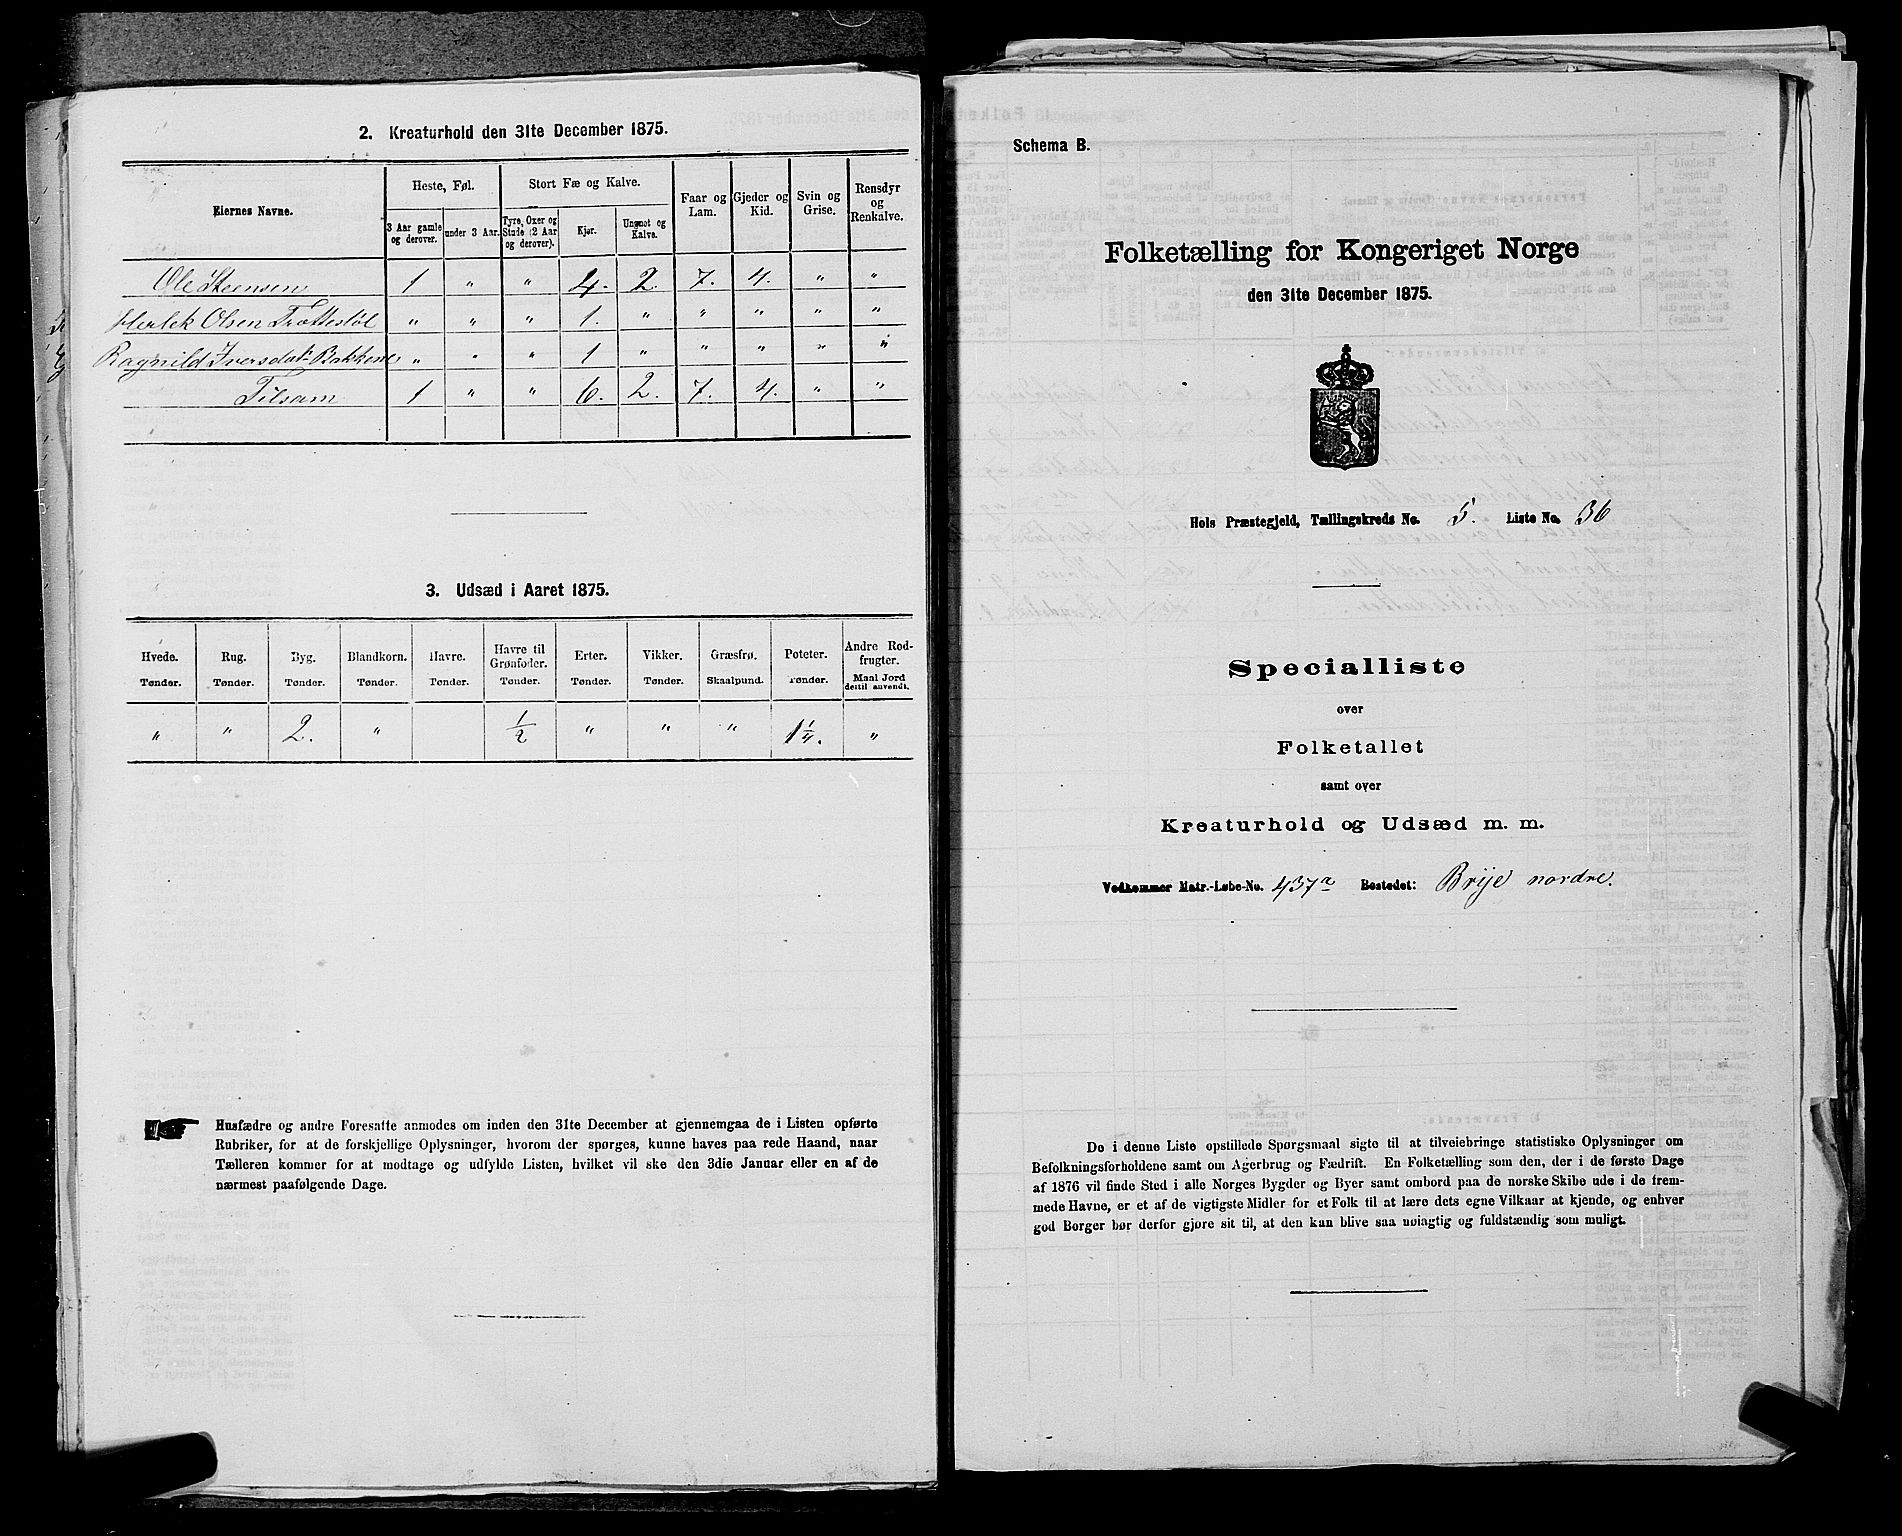 2. Kreaturhold den 31te December 1875.
Eiernes Navne. Heste, Føl. Stort Fæ og Kalve. Faar og Lam. Gjeder og Kid. Svin og Grise. Rensdyr og Renkalve.
3 Aar gamle og derover. under 3 Aar. Tyre, Oxer og Stude (2 Aar og derover). Kjør. Ungnøt og Kalve.
Ole Steensen 1 " " 4. 2. 7. 4. " "
Herlek Olsen Trøttestøl " " " 1. " " " " "
Ragnild Iversdat. Bakkene " " " 1 " " " " "
Tilsam 1 " " 6. 2. 7. 4. " "
3. Udsæd i Aaret 1875.
Hvede. Rug. Byg. Blandkorn. Havre. Havre til Grønfoder. Erter. Vikker. Græsfrø. Poteter. Andre Rodfrugter.
Tønder. Tønder. Tønder. Tønder. Tønder. Tønder. Tønder. Tønder. Skaalpund. Tønder. Maal Jord dertil anvendt.
" " 2. " 1/2 " " " 1 1/4. "
Husfædre og andre Foresatte anmodes om inden den 31te December at gjennemgaa de i Listen opførte
Rubriker, for at de forskjellige Oplysninger, hvorom der spørges, kunne haves paa rede Haand, naar
Tælleren kommer for at modtage og udfylde Listen, hvilket vil ske den 3die Januar eller en af de
nærmest paafølgende Dage.
Schema B.
Folketælling for Kongeriget Norge
den 31te December 1875.
Hols Præstegjeld, Tællingskreds No. 5. Liste No. 36
Specialliste
over
Folketallet
samt over
Kreaturhold og Udsæd m. m.
Vedkommer Matr.-Løbe-No. 437a Bostedet: Brije nordre.
De i denne Liste opstillede Spørgsmaal sigte til at tilveiebringe statistiske Oplysninger om
Befolkningsforholdene samt om Agerbrug og Fædrift. En Folketælling som den, der i de første Dage
af 1876 vil finde Sted i alle Norges Bygder og Byer samt ombord paa de norske Skibe ude i de frem-
mede Havne, er et af de vigtigste Midler for et Folk til at lære dets egne Vilkaar at kjende, og enhver
god Borger bør derfor gjøre sit til, at den kan blive saa nøiagtig og fuldstændig som muligt.